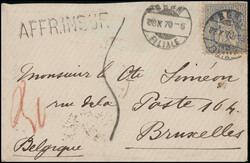 AFFR.INSUF.
FILIALE
Monsieur le Cte Siméon
rue de la Poste 164
Bruxelles
Belgique